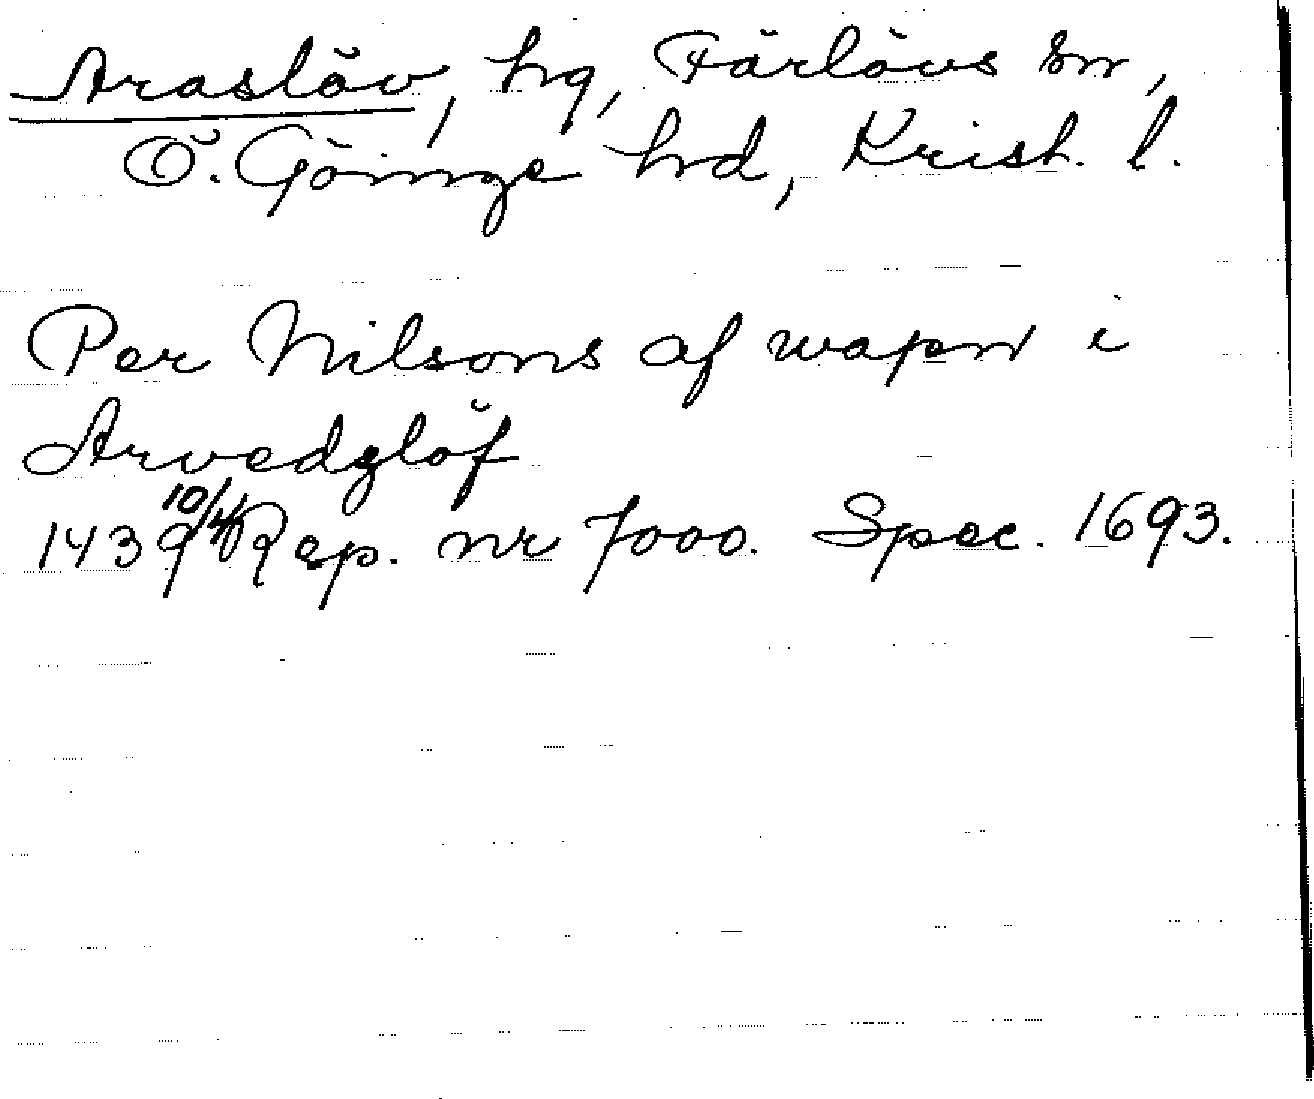 Araslöv, hg, Färlövs sn,
Ö. Göinge hd, Krist. l.
Per Nilsons af wapn i
Arvedzlöf
1439 10/4 Rep. nr 7000. Spec. 1693.